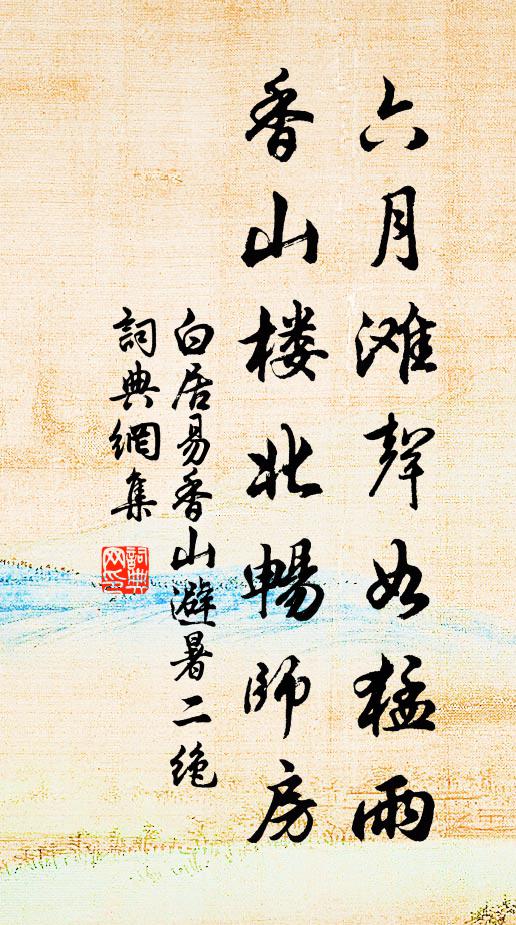 六月滩声如猛雨
香山楼北暢師房
白居易香山避暑二绝
詞典網集
詞典网印